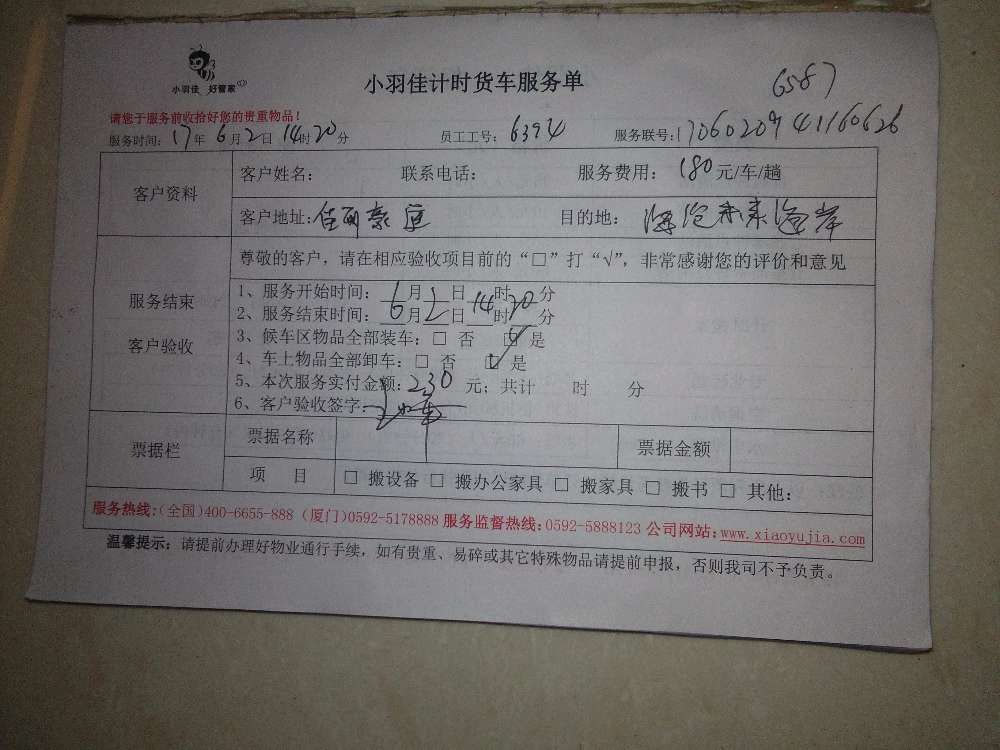 小羽佳 好管家
小羽佳计时货车服务单
6587
请您于服务前收拾好您的贵重物品！
服务时间: 17年 6月2日 14时20分 员工工号: 6394 服务联号: 1706020941160626
客户资料
客户姓名: 联系电话: 服务费用: 180元/车/趟
客户地址: 佳丽豪庭 目的地: 海沧未来海岸
服务结束
客户验收
尊敬的客户，请在相应验收项目前的“□”打“√”，非常感谢您的评价和意见
1、服务开始时间: 6月2日14时20分
2、服务结束时间: 月 日 时 分
3、候车区物品全部装车: □ 否 ☑ 是
4、车上物品全部卸车: □ 否 ☑ 是
5、本次服务实付金额: 230 元; 共计 时 分
6、客户验收签字:
票据栏
票据名称 票据金额
项 目 □ 搬设备 □ 搬办公家具 □ 搬家具 □ 搬书 □ 其他:
服务热线:(全国)400-6655-888 (厦门)0592-5178888 服务监督热线:0592-5888123 公司网站:www.xiaoyujia.com
温馨提示: 请提前办理好物业通行手续，如有贵重、易碎或其它特殊物品请提前申报，否则我司不予负责。